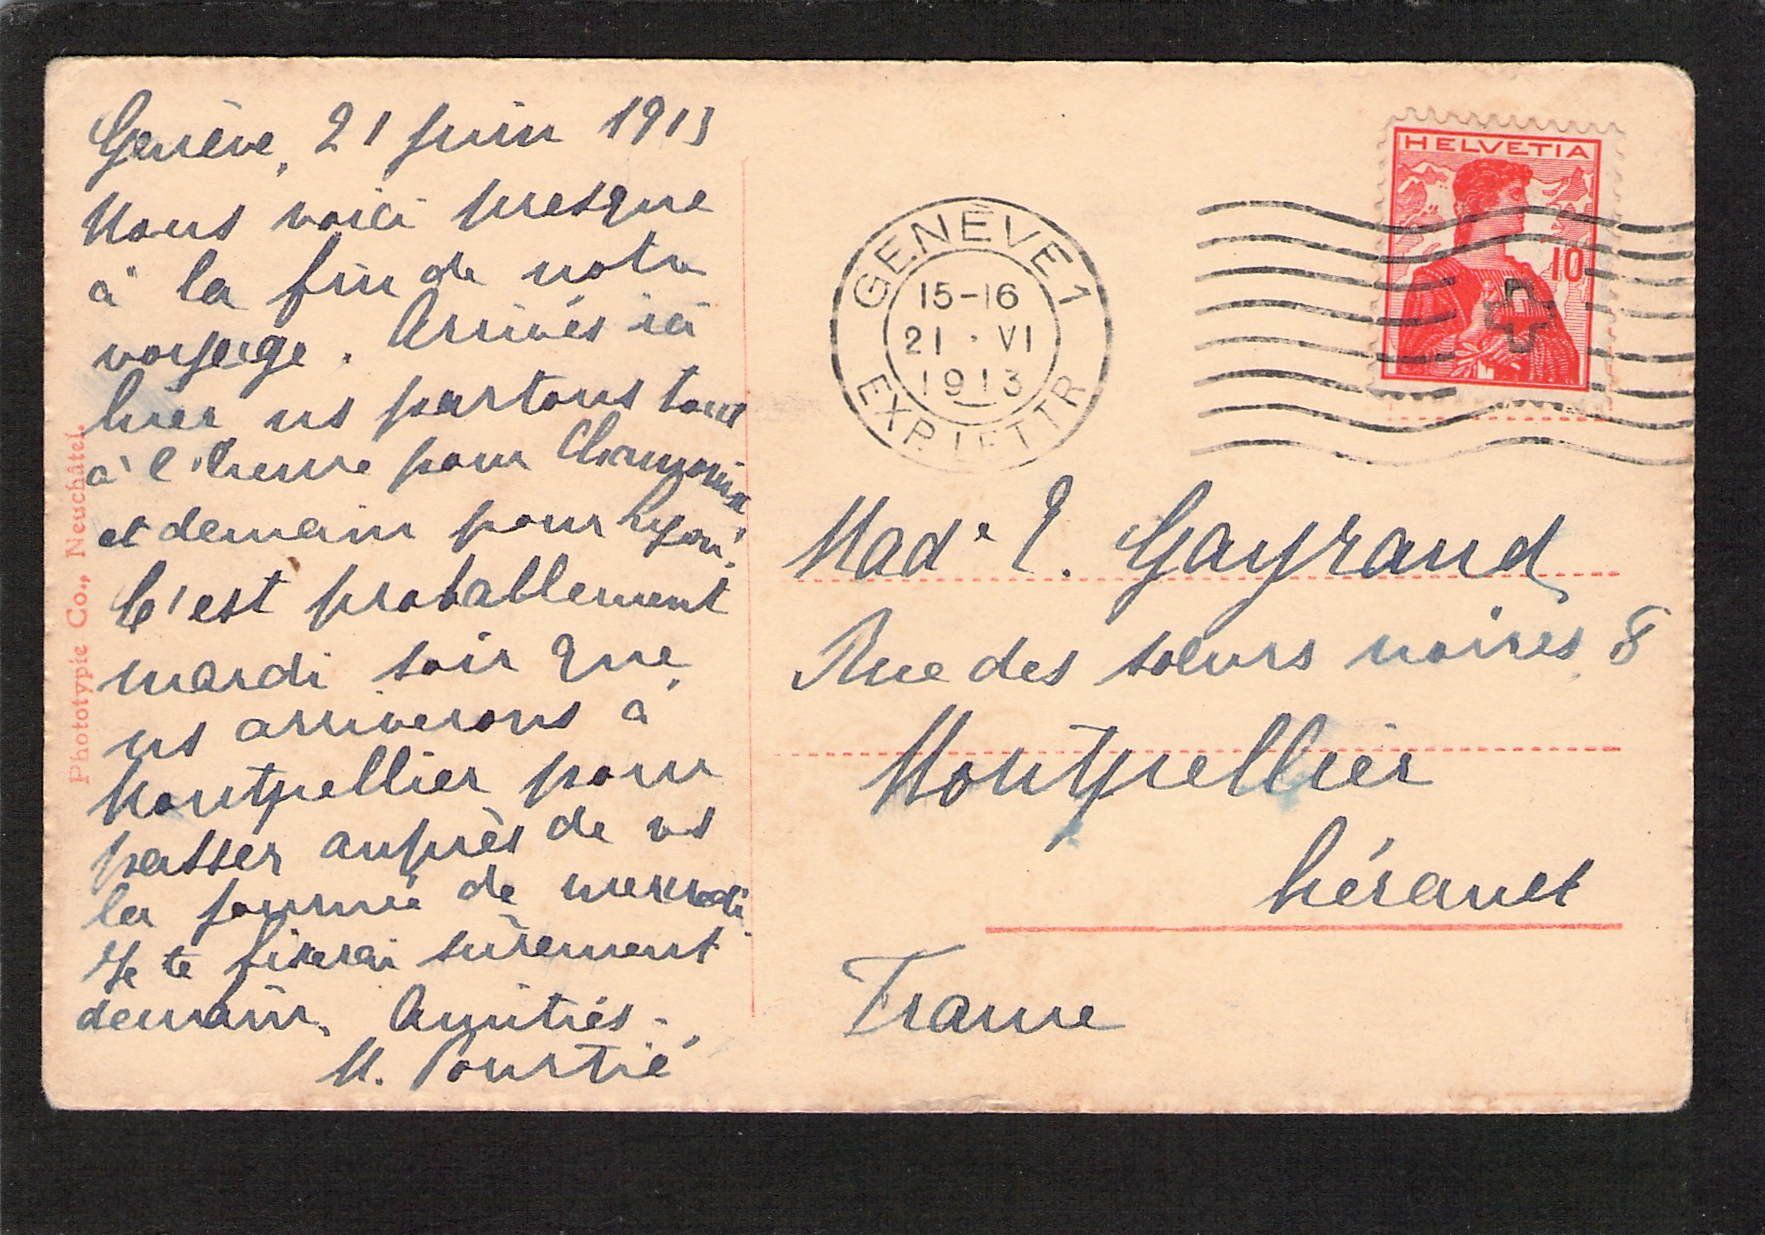 Genève, 21 juin 1913
Nous voici presque
à la fin de notre
voyage. Arrivés ici
hier ns partons tout
à l'heure pour Chamonix
et demain pour Lyon.
C'est probablement
mardi soir que
ns arriverons à
Montpellier pour
passer auprès de vs
la journée de mercredi
Je te fixerai sûrement
demain. Amitiés.
M. Pourtié
Phototypie Co., Neuchâtel.
GENÈVE 1
15-16
21 · VI
1913
EXP. LETTR
HELVETIA
10
Made E. Gayraud
Rue des soeurs noires 8
Montpellier
hérault
France